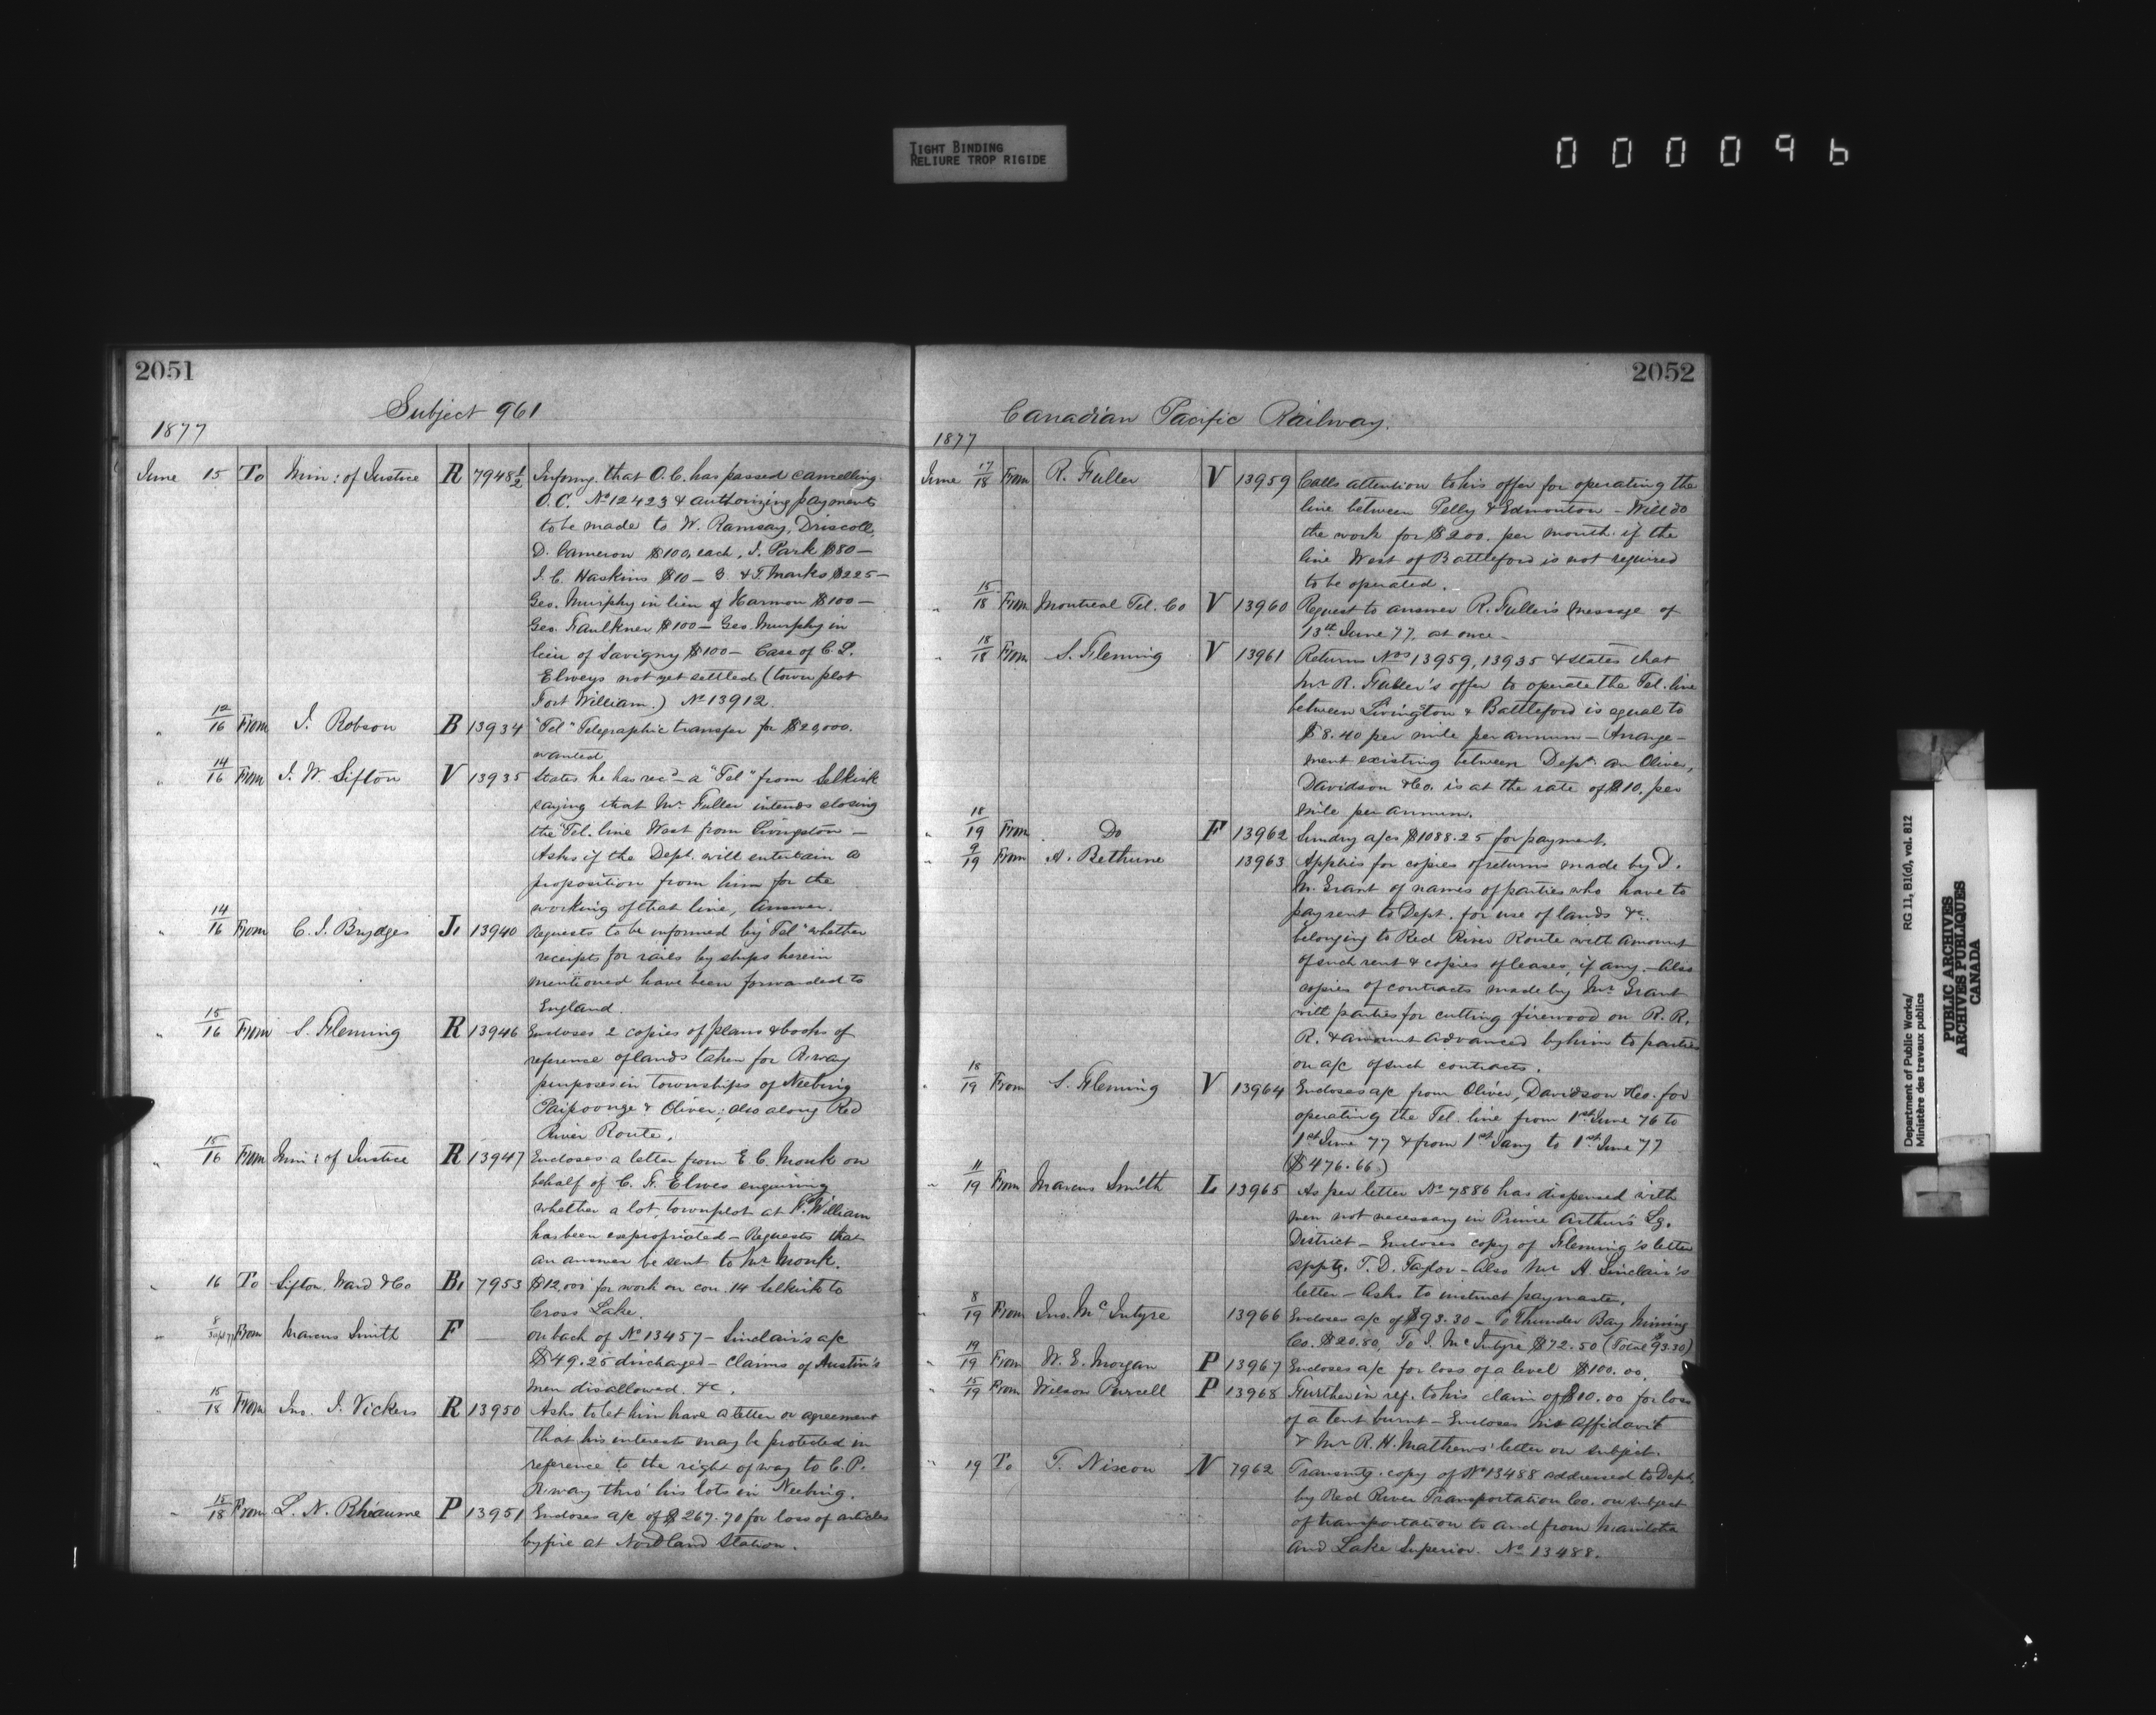 TIGHT BINDING
RELIURE TROP RIGIDE
000096
2051
Subject 961
1877
June 15 To Min: of Justice R 7948½ Informg. that O.C. has passed cancelling
O.C. No 12423 & authorizing payments
to be made to W. Ramsay, Driscoll,
D. Cameron $100. each, J. Park $80—
J. C. Haskins $10— G. & T. Marks $225—
Geo. Murphy in lieu of Harmon $100—
Geo. Faulkner $100— Geo. Murphy in
lieu of Savigny $100— Case of C. L.
Elweys not yet settled (town plot
Fort William.) No 13912.
" 12/16 From J. Robson B 13934 "Tel" Telegraphic transfer for $20,000.
wanted
" 14/16 From J. W. Sifton V 13935 States he has recd a "Tel" from Selkirk
saying that Mr Fuller intends closing
the Tel. line West from Livingston —
Asks if the Dept. will entertain a
proposition from him for the
working of that line, Answer.
" 14/16 From C. J. Brydges J. 13940 Requests to be informed by "Tel" whether
receipts for rails by ships herein
mentioned have been forwarded to
England.
" 15/16 From S. Fleming R 13946 Encloses 2 copies of plans & books of
reference of lands taken for R.way
purposes in Townships of Neebing
Paipoonge & Oliver; also along Red
River Route.
" 15/16 From Min: of Justice R 13947 Encloses a letter from E. C. Monk on
behalf of C. F. Elwes enquiring
whether a lot, townplot at Ft. William
has been expropriated — Requests that
an answer be sent to Mr Monk.
" 16 To Sifton Ward & Co B. 7953 $12,000 for work on con. 14 Selkirk to
Cross Lake.
" 8/ From Marcus Smith F — On back of No 13457 — Sinclair's a/c
$49.25 discharged — Claims of Austin's
men disallowed. &c.
" 15/18 From Jno. J. Vickers R 13950 Asks to let him have a letter or agreement
that his interests may be protected in
reference to the right of way to C. P.
R.way thro' his lots in Neebing.
" 15/18 From L. N. Rhéaume P 13951 Encloses a/c of $267.70 for loss of articles
by fire at Nordland Station.
2052
Canadian Pacific Railway.
1877
June 17/18 From R. Fuller V 13959 Calls attention to his offer for operating the
line between Pelly & Edmonton — Will do
the work for $200. per month if the
line West of Battleford is not required
to be operated.
" 15/18 From Montreal Tel. Co V 13960 Request to answer R. Fuller's message of
13th June 77, at once.
" 18/18 From S. Fleming V 13961 Returns Nos 13959, 13935 & states that
Mr R. Fuller's offer to operate the Tel. line
between Livingston & Battleford is equal to
$8.40 per mile per annum — Arrange-
ment existing between Dept. an Oliver,
Davidson & Co. is at the rate of $10. per
mile per annum.
" 18/19 From Do F 13962 Sundry a/cs $1088.25 for payment.
" 9/19 From A. Bethune 13963 Applies for copies of returns made by D.
M. Grant of names of parties who have to
pay rent to Dept. for use of lands &c.
belonging to Red River Route with amount
of such rent & copies of leases, if any — Also
copies of contracts made by Mr Grant
with parties for cutting firewood on R. R.
R. & amount advanced by him to parties
on a/c of such contracts.
" 18/19 From S. Fleming V 13964 Encloses a/c from Oliver, Davidson & Co. for
operating the Tel. line from 1st June 76 to
1st June 77 & from 1st Jany to 1st June 77
($476.66)
" 11/19 From Marcus Smith L 13965 As per letter No 7886 has dispensed with
men not necessary in Prince Arthur's Lg.
District — Encloses copy of Fleming's letter
apptg. T. D. Taylor — Also Mr A. Sinclair's
letter — Asks to instruct paymaster.
" 8/19 From Jno. McIntyre 13966 Encloses a/c of $93.30 — To Thunder Bay Mining
Co. $20.80, To J. McIntyre $72.50 (Total $93.30)
" 19/19 From W. E. Morgan P 13967 Encloses a/c for loss of a level $100.00.
" 15/19 From Wilson Purcell P 13968 Further in ref. to his claim of $10.00 for loss
of a tent burnt — Encloses his affidavit
& Mr R. H. Mathews' letter on subject.
" 19 To T. Nixon N 7962 Transmtg. copy of No 13488 addressed to Dept.
by Red River Transportation Co. on subject
of transportation to and from Manitoba
and Lake Superior. No 13488.
Department of Public Works/
Ministère des travaux publics
RG 11, B1(d), vol. 812
PUBLIC ARCHIVES
ARCHIVES PUBLIQUES
CANADA